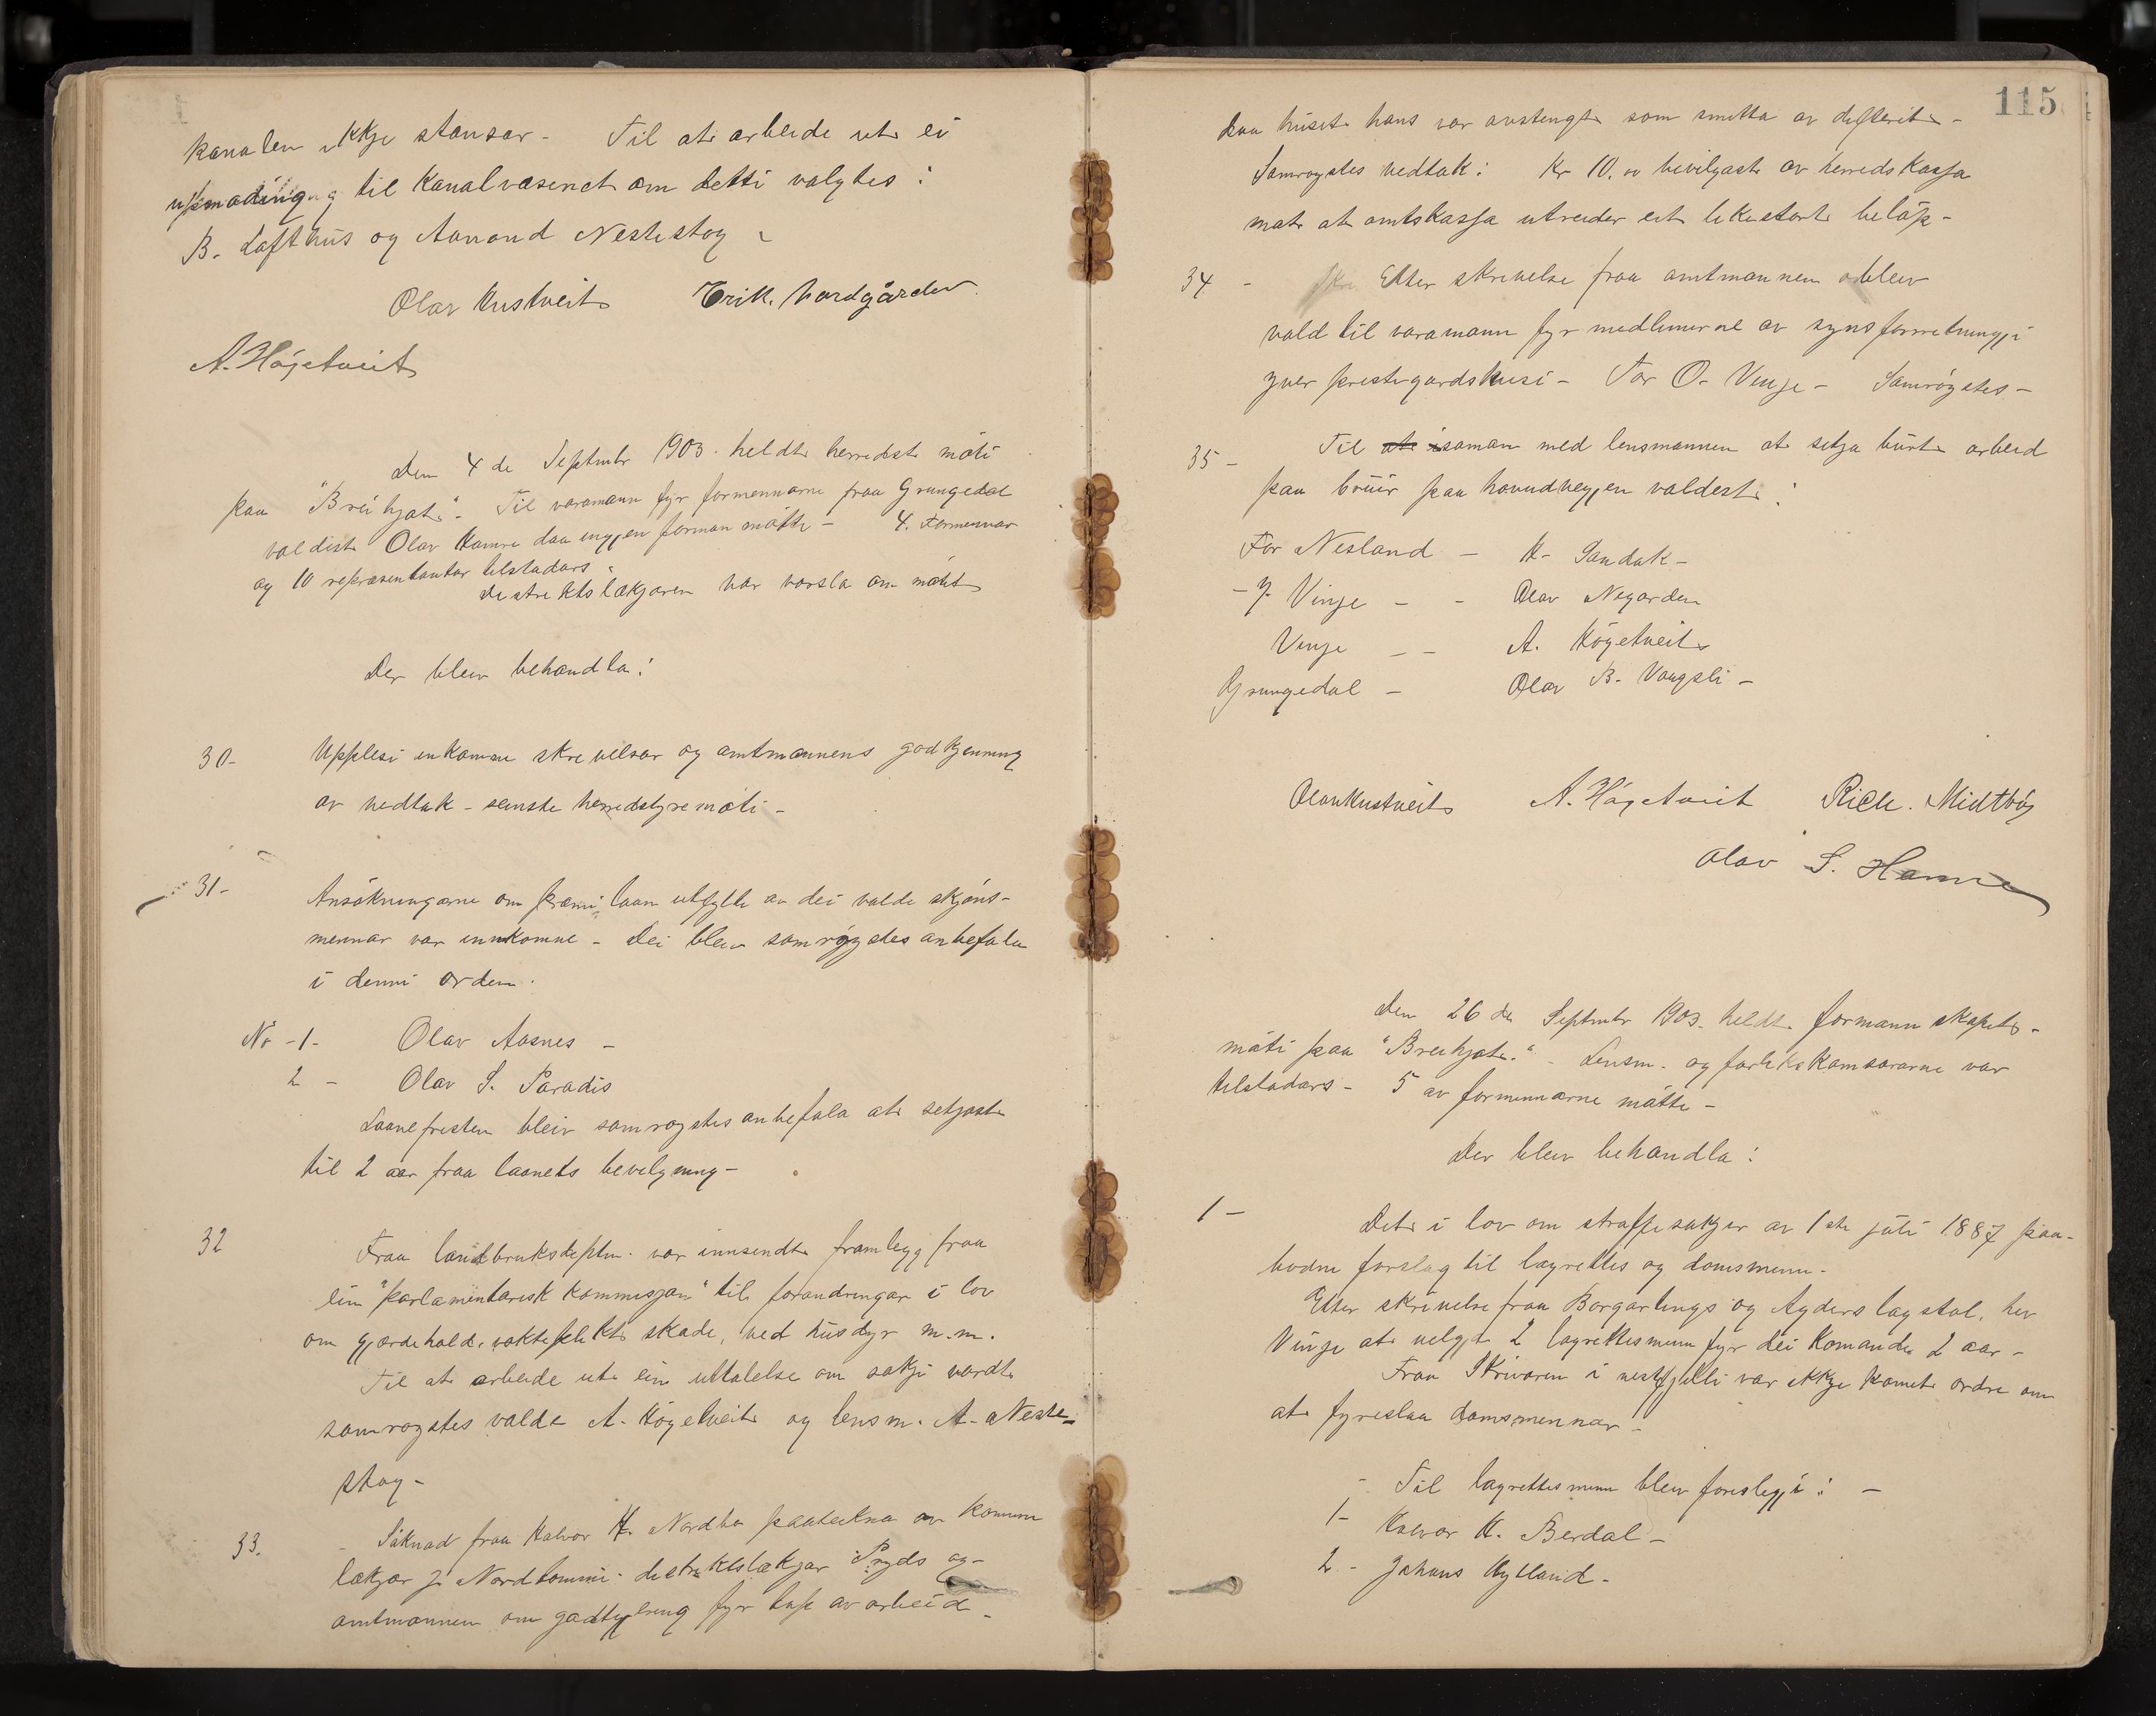 kanalen ikkje stansar - Til at arbeide ut ei
uppmoding til Kanalvæsenet om detti valgtes :
B. Lofthus og Aanond Nestestog -
Olav Kustveit Erik. Nordgården
A. Högetveit
Den 4 de Septmbr 1903. heldt herredst. möti
paa "Breihjat". Til varamann fyr formennarne fraa Grungedal
valdest Olav Hamre daa ingjen forman mötte - 4. Formennar
og 10 repræsentantar tilstadars -
Destriktslækjaren var varsla om mötet
Der bleiv behandla :
30- Upplesi innkomne skrivelsar og amtmannens godkjenning
av vedtak - seinste herredstyremöti -
31- Ansökningarne om præmi laan utfylte av dei valde skjöns-
mennar var innkomne - Dei bleiv samröystes anbefala
i denni orden.
No -1- Olav Aasnes -
2 - Olav S. Paradis
Laanefristen bleiv samroystes anbefala at setjast
til 2 aar fraa laanets bevilgning -
32 Fraa landbruksdeptm. var innsendt framlegg fraa
ein "parlamentarisk kommisjon" til forandringar i lov
om gjærdehald, vakteplikt skade, ved husdyr m.m.
Til at arbeide ut ein uttalelse om sakji vardt
samroystes valde A. Högetveit og lensm. A. Neste-
stog -
33. Söknad fraa Halvor H. Nordbö paateikna av komune
lækjar J. Nordtömmi. destriktslækjar Pryds og -
amtmannen om godtgjering fyr tap av arbeid -
115
daa huset hans var avstengt som smitta av defterit -
Samroystes vedtak : Kr 10.00 bevilgast av herredskassa
mot at amtskassa utreder eit likestort beløp -
34 - Etter skrivelse fraa amtmannen bleiv
vald til varamann fyr medlimerne av synsforretningji
yver prestegardshusi - Tor O. Vinje - Samröystes -
35 - Til at isaman med lensmannen at setja burt arbeid
paa bruir paa hovudvegjen valdest :
For Nesland - H. Sandok -
- Y Vinje - - Olav Negarden
Vinje - - A. Högetveit
Grungedal - Olav B. Vaagsli -
Olav Kustveit A. Högetveit Rich. Midtböj
Olav S. Hamre
Den 26 de Septmbr 1903. heldt formannskapet -
möti paa "Breihjat." - Lensm. og forlikskomsararne var
tilstadars - 5 av formennarne mötte -
Der bleiv behandla :
1 - Det i lov om straffesakjer av 1 ste juli 1887 paa-
bodne forslag til lagrettes og domsmenn -
Etter skrivelse fraa Borgartings og Agders lagstol, hev
Vinje at velgje 2 lagrettesmenn fyr dei komande 2 aar -
Fraa Skrivaren i vestfjelli var ikkje komet ordre om
at fyreslaa domsmennar -
- Til lagrettesmenn bleiv foreslegji : -
1- Halvor H. Berdal -
2 - Johans Nylland -